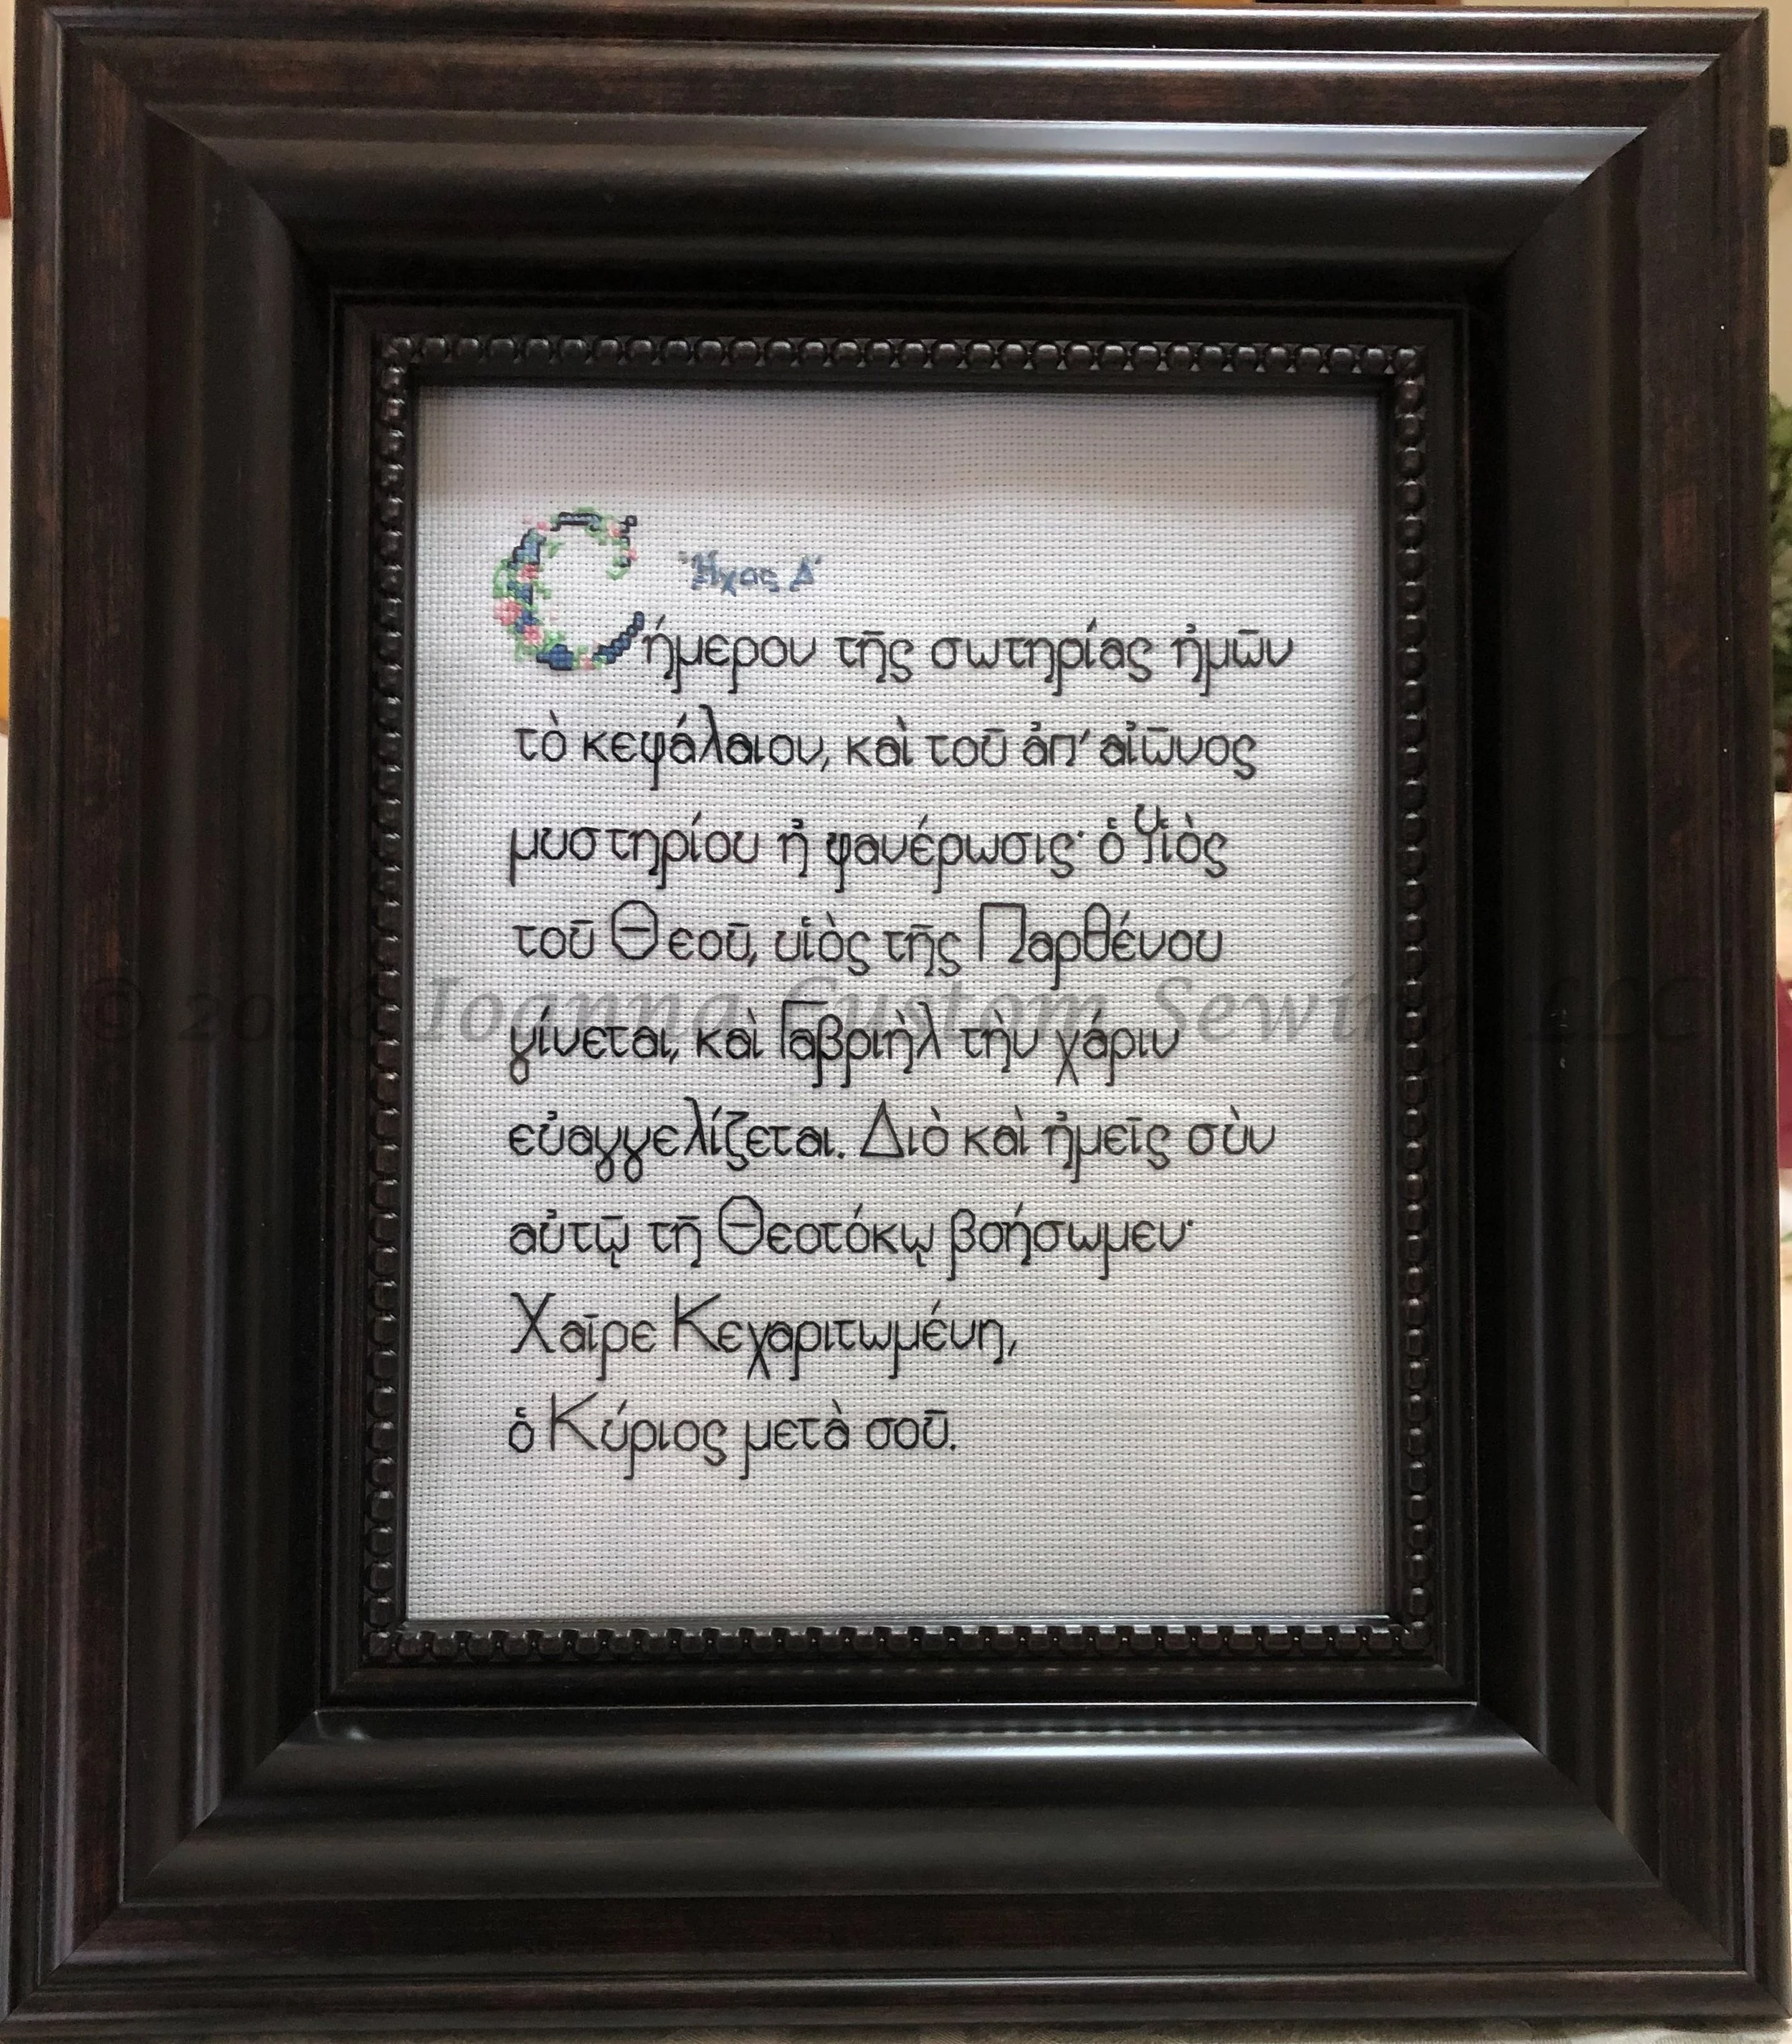 Ἦχος Δ´
Cήμερον τῆς σωτηρίας ἡμῶν
τὸ κεφάλαιον, καὶ τοῦ ἀπ’ αἰῶνος
μυστηρίου ἡ φανέρωσις· ὁ Υἱὸς
τοῦ Θεοῦ, υἱὸς τῆς Παρθένου
γίνεται, καὶ Γαβριὴλ τὴν χάριν
εὐαγγελίζεται. Διὸ καὶ ἡμεῖς σὺν
αὐτῷ τῇ Θεοτόκῳ βοήσωμεν·
Χαῖρε Κεχαριτωμένη,
ὁ Κύριος μετὰ σοῦ.
© 2020 Ioanna Custom Sewing, LLC